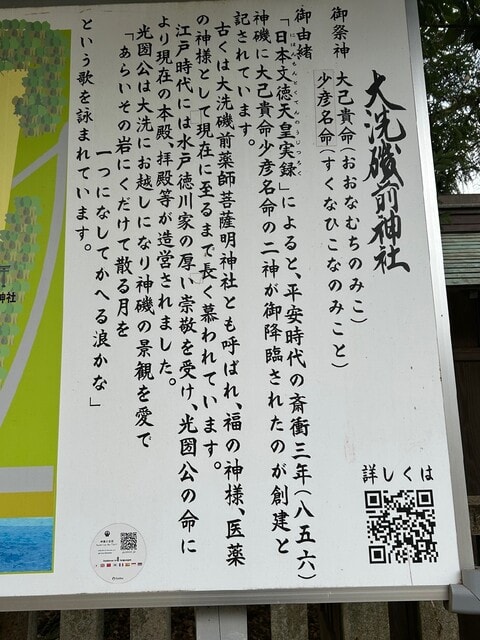 大洗磯前神社
御祭神　大己貴命(おおなむちのみこ)
少彦名命(すくなひこなのみこと)
御由緒
「日本文徳天皇実録」によると、平安時代の斎衡三年(八五六)
にほんもんとくてんのうじつろく
神磯に大己貴命少彦名命の二神が御降臨されたのが創建と
記されています。
古くは大洗磯前薬師菩薩明神社とも呼ばれ、福の神様、医薬
の神様として現在に至るまで長く慕われています。
江戸時代には水戸徳川家の厚い崇敬を受け、光圀公の命に
より現在の本殿、拝殿等が造営されました。
光圀公は大洗にお越しになり神磯の景観を愛で
「あらいその岩にくだけて散る月を
一つになしてかへる浪かな」
という歌を詠まれています。
詳しくは
神社